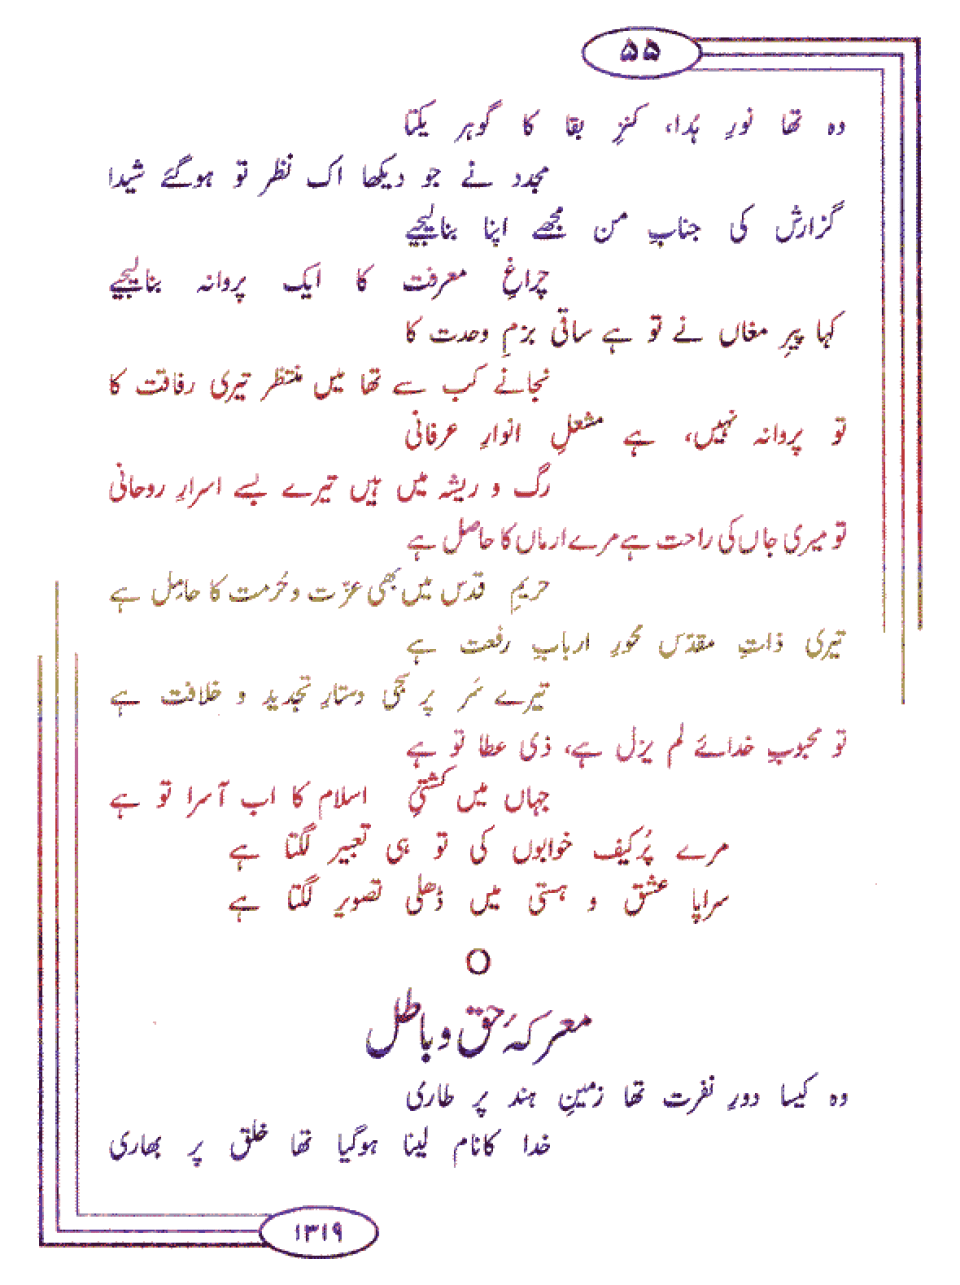 ۵۵
وہ تھا نورِ ہُدا، کنزِ بقا کا گوہر یکتا
مجدد نے جو دیکھا اک نظر تو ہوگئے شیدا
گزارش کی جنابِ من مجھے اپنا بنالیجیے
چراغِ معرفت کا ایک پروانہ بنالیجیے
کہا پیرِ مغاں نے تو ہے ساقی بزمِ وحدت کا
نجانے کب سے تھا میں منتظر تیری رفاقت کا
تو پروانہ نہیں، ہے مشعلِ انوارِ عرفانی
رگ و ریشہ میں ہیں تیرے بسے اسرارِ روحانی
تو میری جاں کی راحت ہے مرے ارماں کا حاصل ہے
حریمِ قدس میں بھی عزّت و حُرمت کا حامِل ہے
تیری ذاتِ مقدّس محورِ اربابِ رفعت ہے
تیرے سَر پر سجی دستارِ تجدید و خلافت ہے
تو محبوبِ خدائے لم یزل ہے، ذی عطا تو ہے
جہاں میں کشتیِ اسلام کا اب آسرا تو ہے
مرے پُرکیف خوابوں کی تو ہی تعبیر لگتا ہے
سراپا عشق و ہستی میں ڈھلی تصویر لگتا ہے
O
معرکۂ حق و باطل
وہ کیسا دورِ نفرت تھا زمینِ ہند پر طاری
خدا کانام لینا ہوگیا تھا خلق پر بھاری
۱۳۱۹